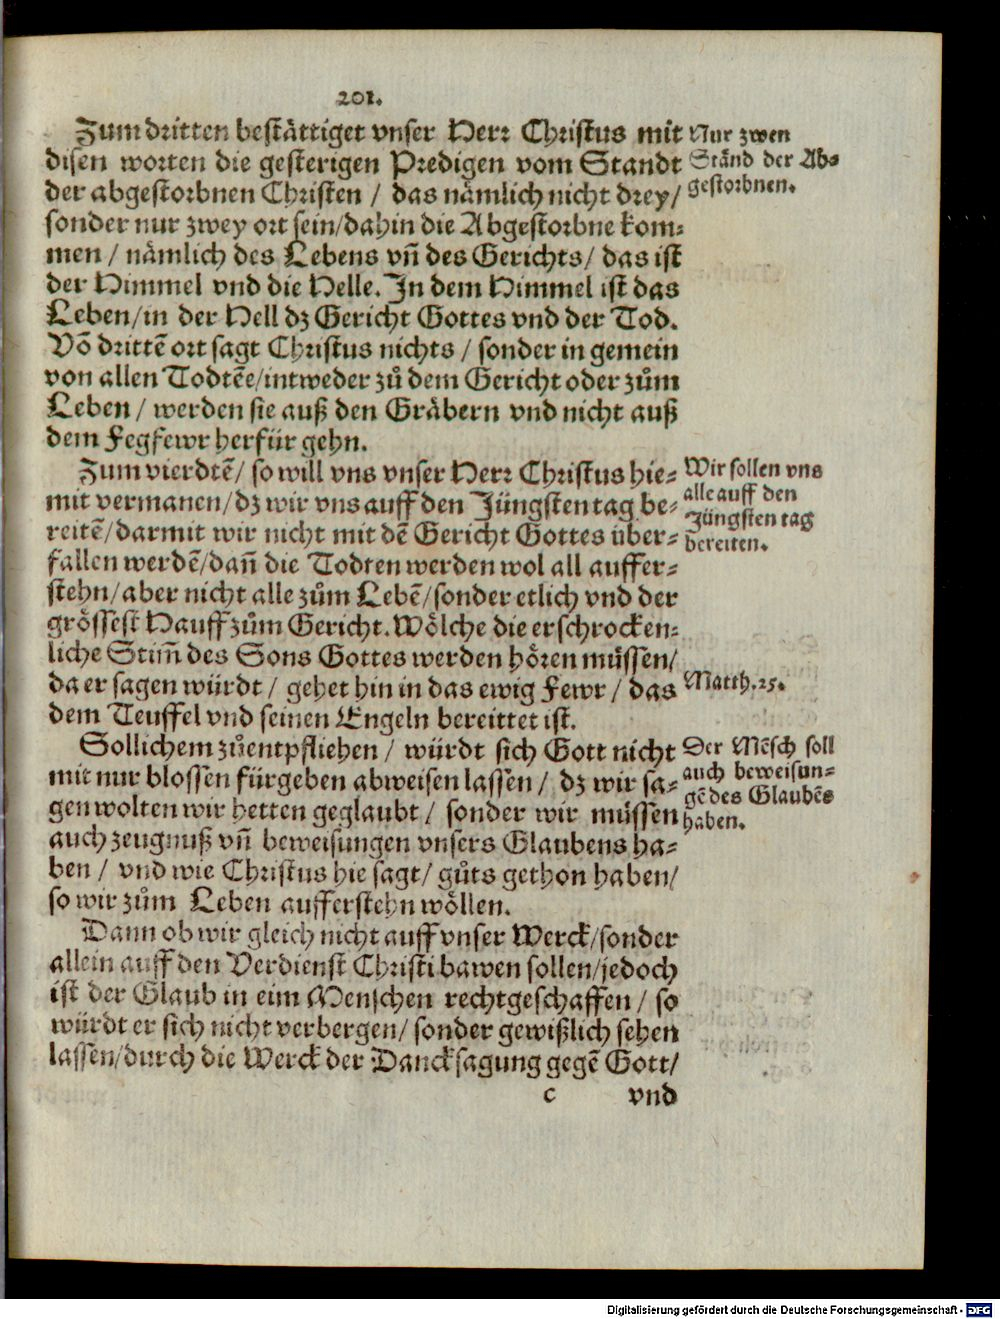 201.
Zum dritten bestättiget vnser Herr Christus mit
disen worten die gesterigen Predigen vom Standt
der abgestorbnen Christen / das nämlich nicht drey/
sonder nur zwey ort sein/dahin die Abgestorbne kom-
men / nämlich des Lebens vñ des Gerichts/ das ist
der Himmel vnd die Helle. In dem Himmel ist das
Leben/in der Hell dz Gericht Gottes vnd der Tod.
Võ drittẽ ort sagt Christus nichts / sonder in gemein
von allen Todtẽe/intweder zů dem Gericht oder zům
Leben / werden sie auß den Gräbern vnd nicht auß
dem Fegfewr herfür gehn.
Nur zwen
Ständ der Ab-
gestorbnen.
Zum vierdtẽ/ so will vns vnser Herr Christus hie-
mit vermanen/dz wir vns auff den Jüngsten tag be-
reitẽ/darmit wir nicht mit dẽ Gericht Gottes über-
fallen werdẽ/dañ die Todten werden wol all auffer-
stehn/aber nicht alle zům Lebẽ/sonder etlich vnd der
grössest Hauff zům Gericht. Wölche die erschrocken-
liche Stim̃ des Sons Gottes werden hören müssen/
da er sagen würdt / gehet hin in das ewig Fewr / das
dem Teuffel vnd seinen Engeln bereittet ist.
Wir sollen vns
alle auff den
Jüngsten tag
bereiten.
Matth.25.
Sollichem zůentpfliehen / würdt sich Gott nicht
mit nur blossen fürgeben abweisen lassen / dz wir sa-
gen wolten wir hetten geglaubt / sonder wir müssen
auch zeugnuß vñ beweisungen vnsers Glaubens ha-
ben / vnd wie Christus hie sagt/ gůts gethon haben/
so wir zům Leben aufferstehn wöllen.
Der Mẽsch soll
auch beweisun-
gẽ des Glaubẽs
haben.
Dann ob wir gleich nicht auff vnser Werck/sonder
allein auff den Verdienst Christi bawen sollen/jedoch
ist der Glaub in eim Menschen rechtgeschaffen / so
würdt er sich nicht verbergen/ sonder gewißlich sehen
lassen/durch die Werck der Dancksagung gegẽ Gott/
c vnd
Digitalisierung gefördert durch die Deutsche Forschungsgemeinschaft - DFG